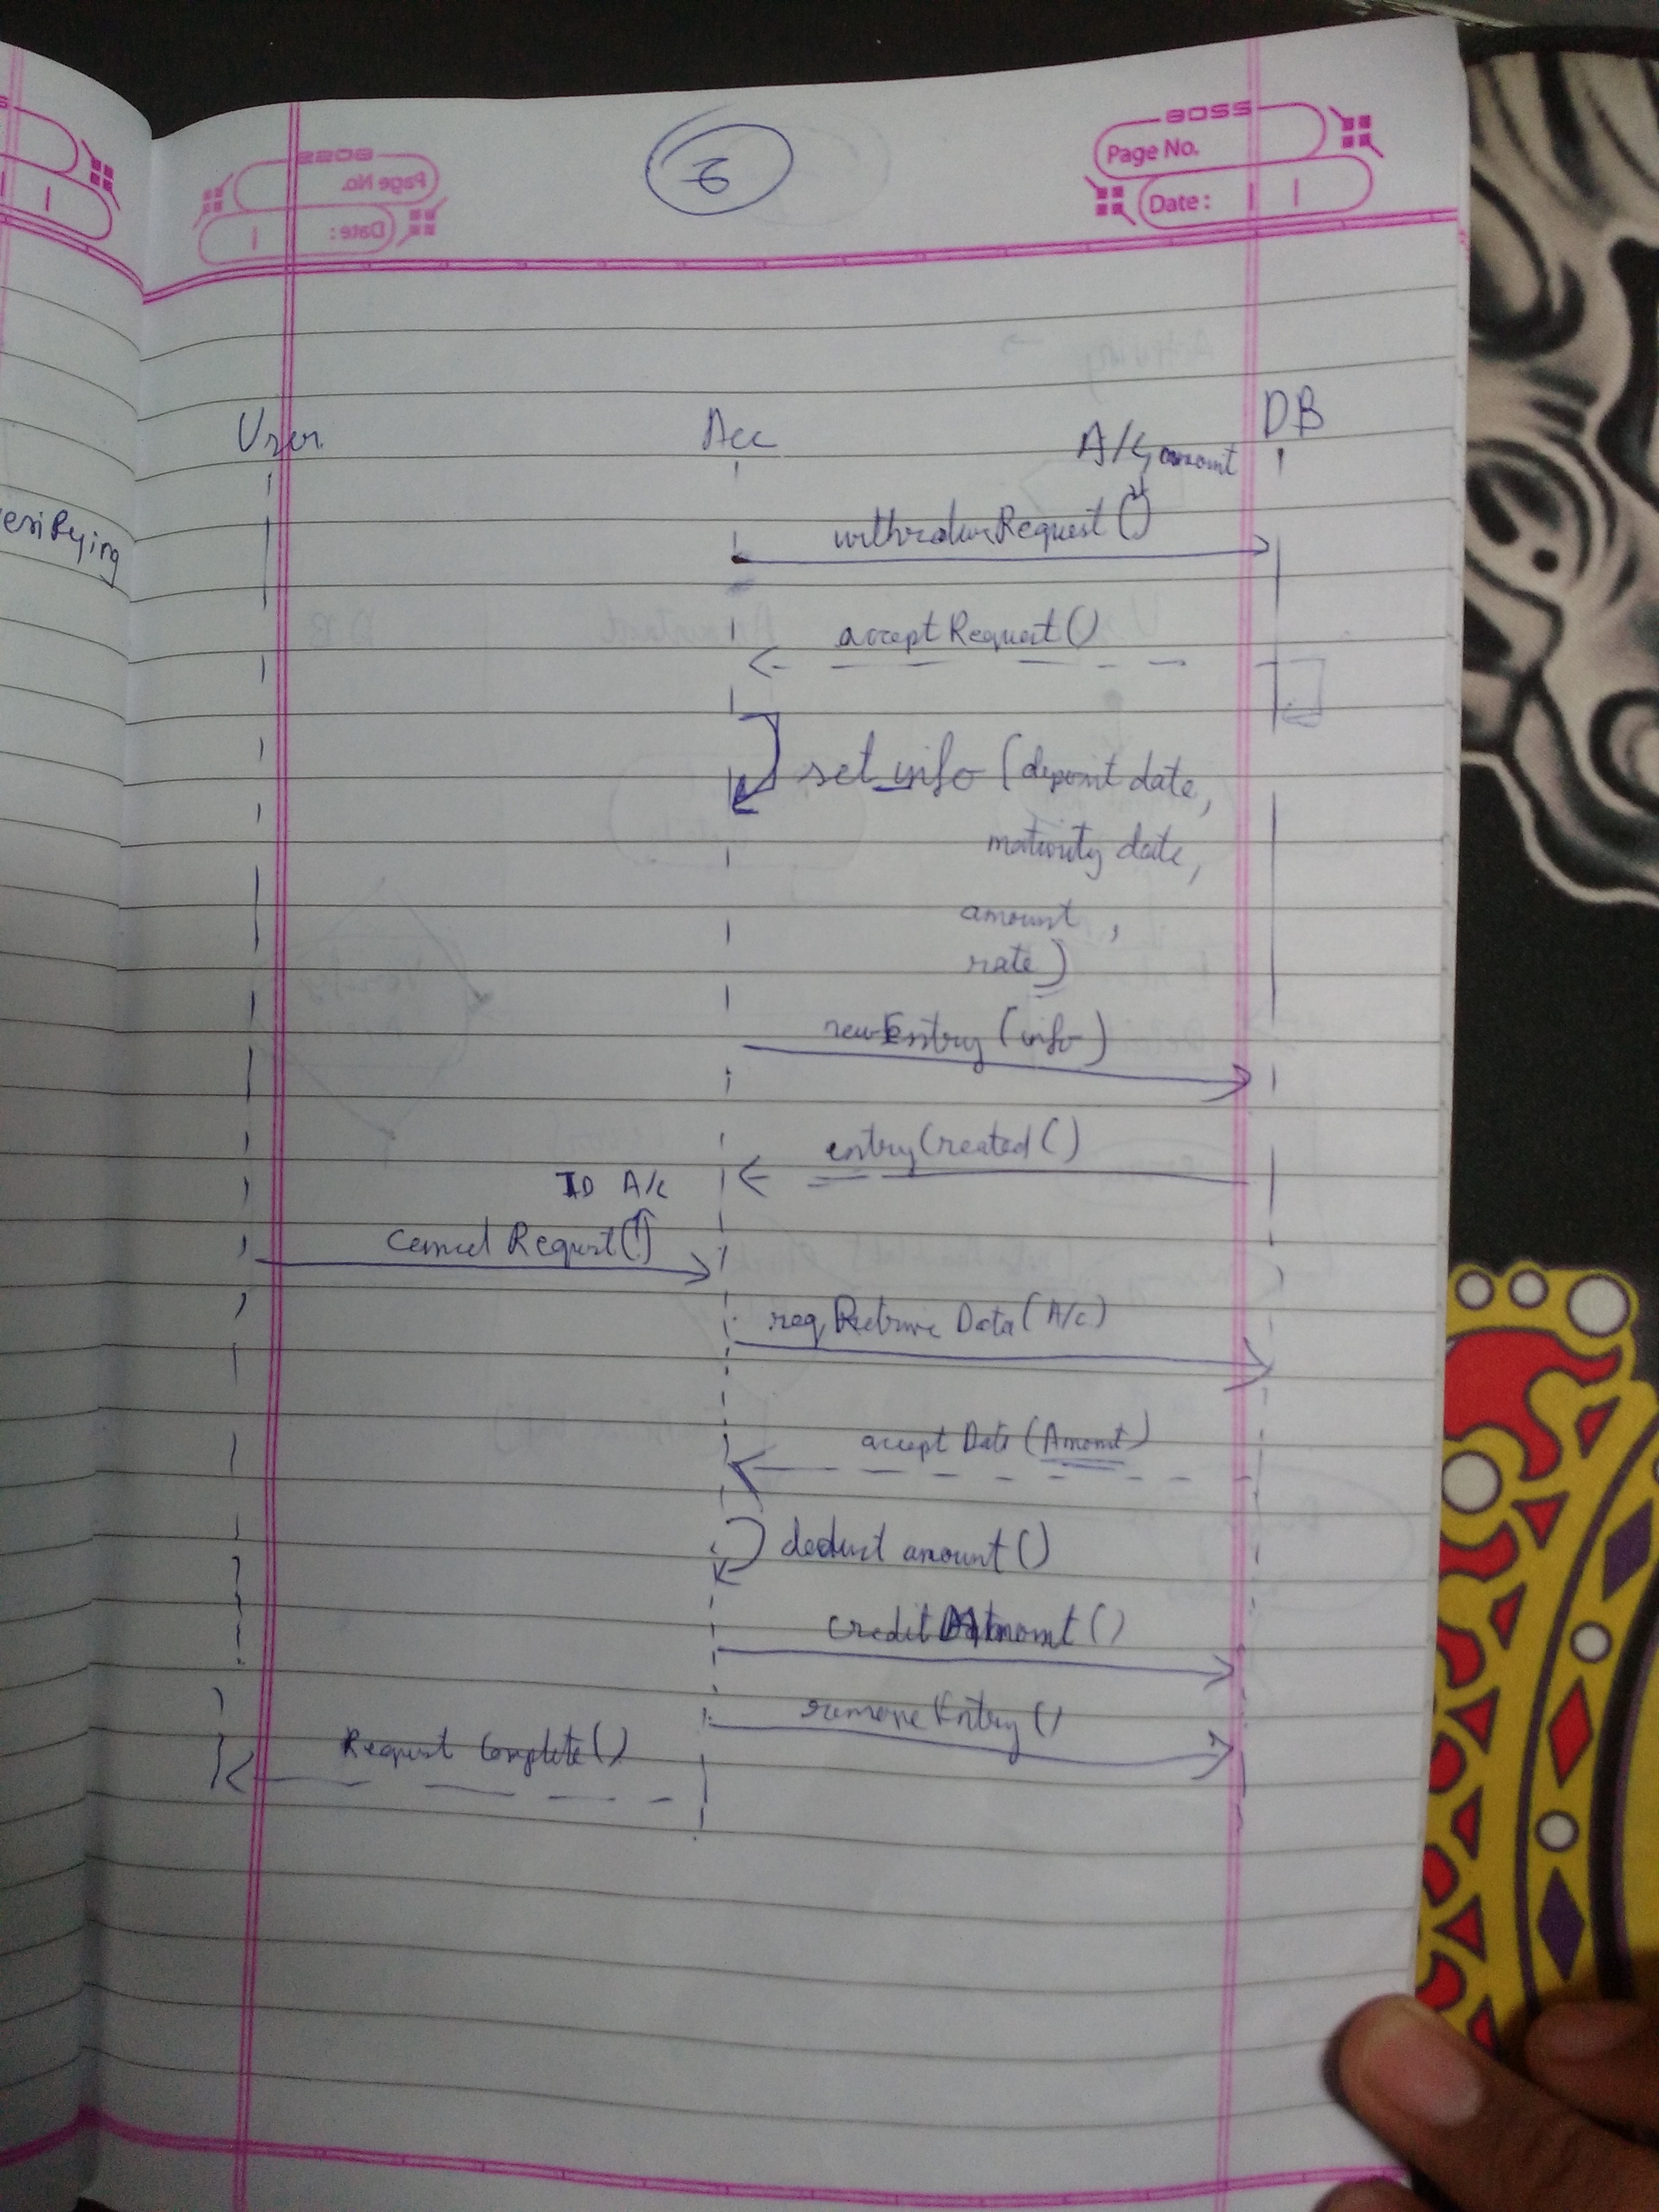 BOSS
Page No.
Date:
User
Acc
A/c, amount
DB
withdrawRequest()
erifying
acceptRequest()
set_info (deposit date,
maturity date,
amount,
rate)
newEntry (info)
entryCreated()
ID A/c
Cancel Request()
req Retrive Data (A/c)
accept Data (Amomt)
deduct amount()
credit Amomt()
remove Entry()
Request Complete()